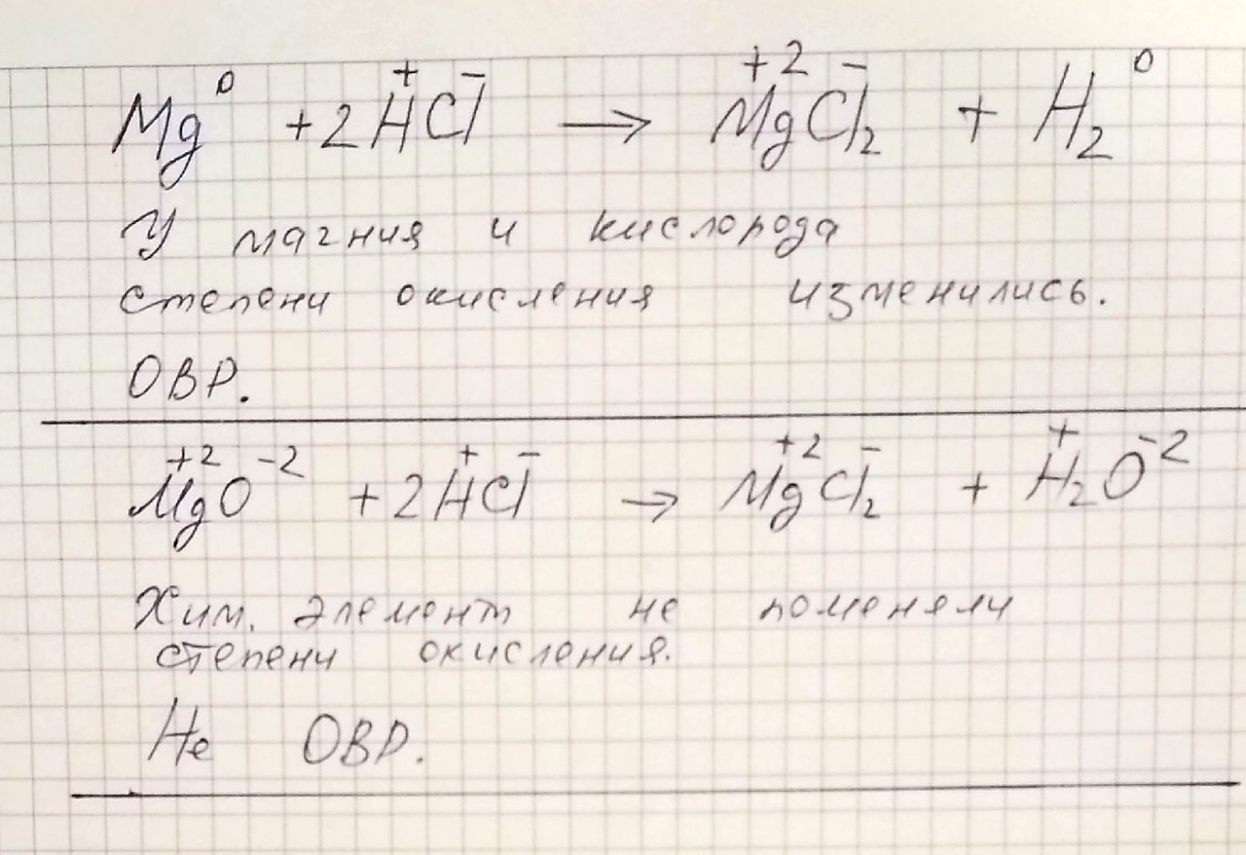 Mg⁰ + 2H⁺Cl⁻ → Mg⁺²Cl₂⁻ + H₂⁰
У магния и кислорода
степени окисления изменились.
ОВР.
Mg⁺²O⁻² + 2H⁺Cl⁻ → Mg⁺²Cl₂⁻ + H₂⁺O⁻²
Хим. элемент не поменяли
степени окисления.
Не ОВР.